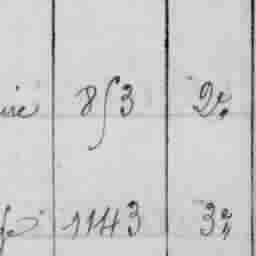 ire 853 2e
1143 3e